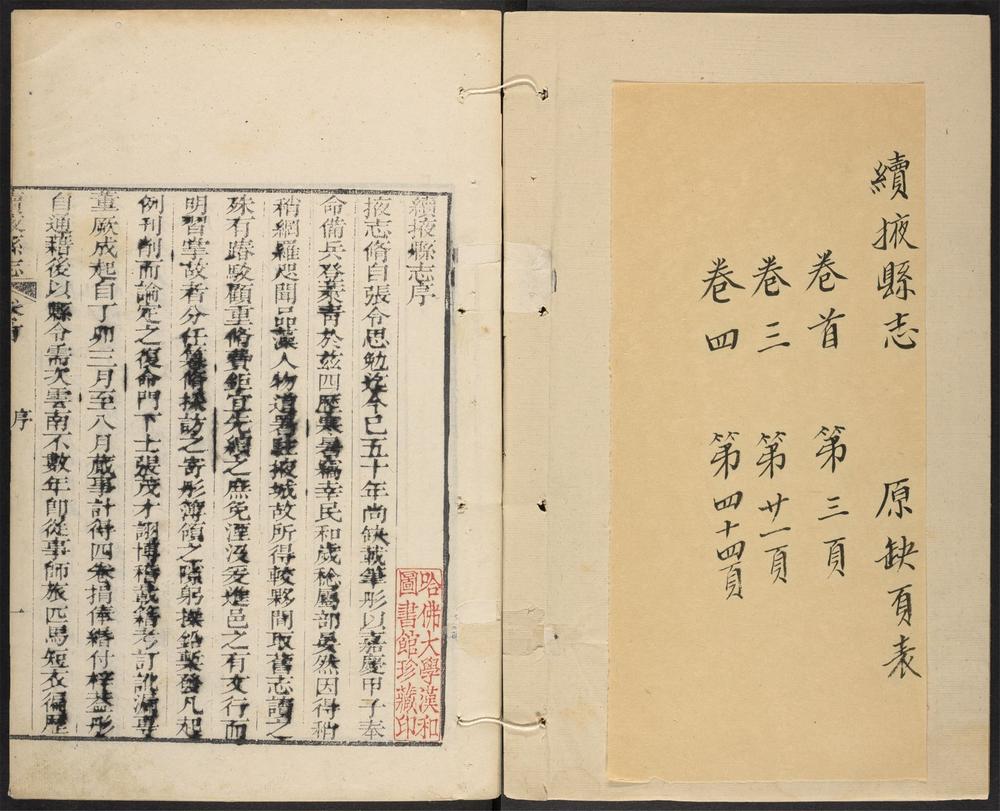 續掖縣志　原缺頁表
卷首　第三頁
卷三　第廿一頁
卷四　第四十四頁
續掖縣志序
掖志脩自張令思勉迄今已五十年尚缺載筆彤以嘉慶甲子奉
命備兵登萊靑於兹四歷寒暑竊幸民和歲稔屬部晏然因得稍
稍網羅咫聞品藻人物道署駐掖城故所得較夥間取舊志讀之
殊有踳駁顧重脩費鉅宜先續之庶免湮沒爰進邑之有文行而
明習掌故者分任篹脩採訪之寄彤簿領之隙躬操鉛槧發凡起
例刊削而論定之復命門下士張茂才詡博稽載籍考訂訛漏專
董厥成起自丁卯三月至八月蕆事計得四卷捐俸緡付梓蓋彤
自通籍後以縣令需次雲南不數年卽從事師旅匹馬短衣徧歷
續掖縣志　卷首　序　一
哈佛大學漢和
圖書館珍藏印